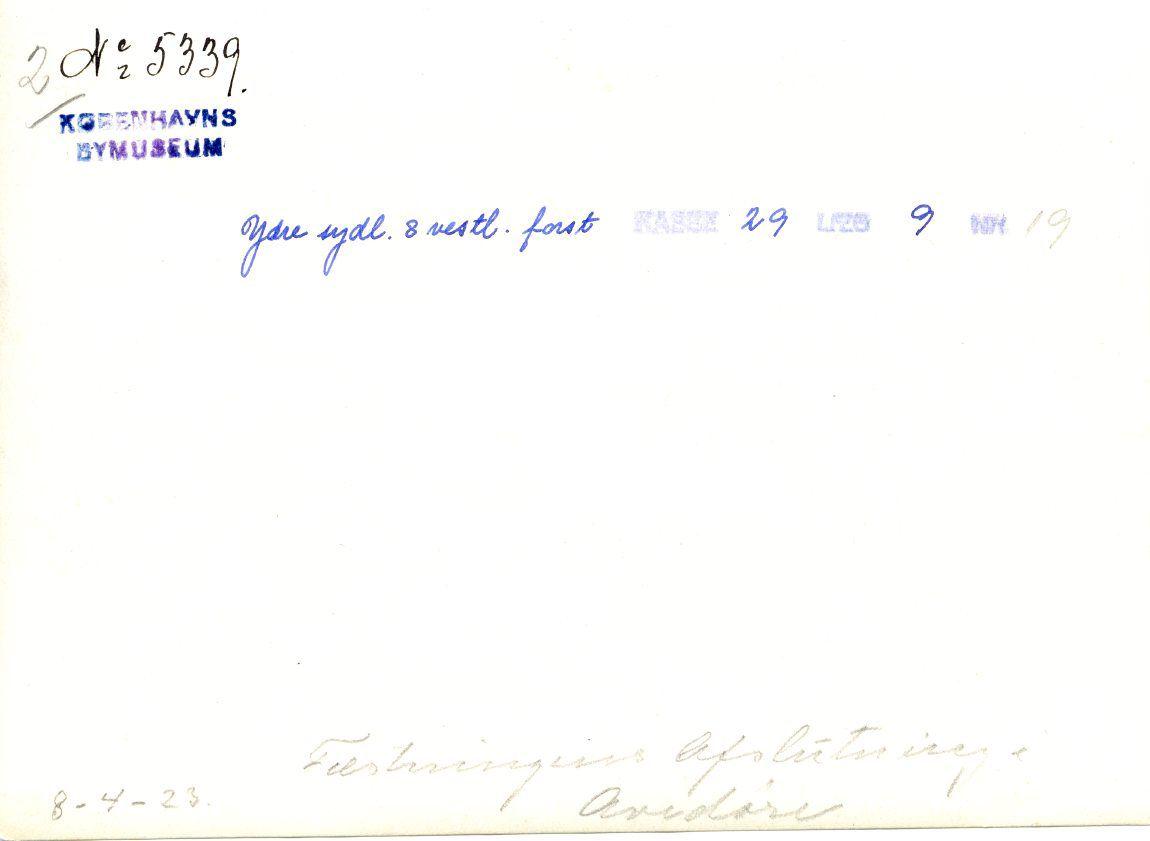 2 Nr 5339.
KØBENHAVNS
BYMUSEUM
Ydre sydl. & vestl. forst KASSE 29 LÆG 9 NR 19
Fæstningens Afslutning i
Avedøre
8-4-23.